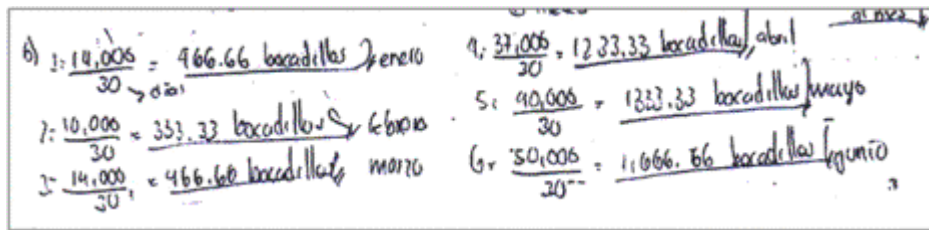 al mes
b) 1: 14,000/30 = 466.66 bocadillos } enero
→ días
2: 10,000/30 = 333.33 bocadillos } febrero
3- 14,000/30 = 466.66 bocadillos } marzo
4: 37,000/30 = 1233.33 bocadillos } abril
5: 40,000/30 = 1333.33 bocadillos } mayo
6: 50,000/30 = 1,666.66 bocadillos } junio